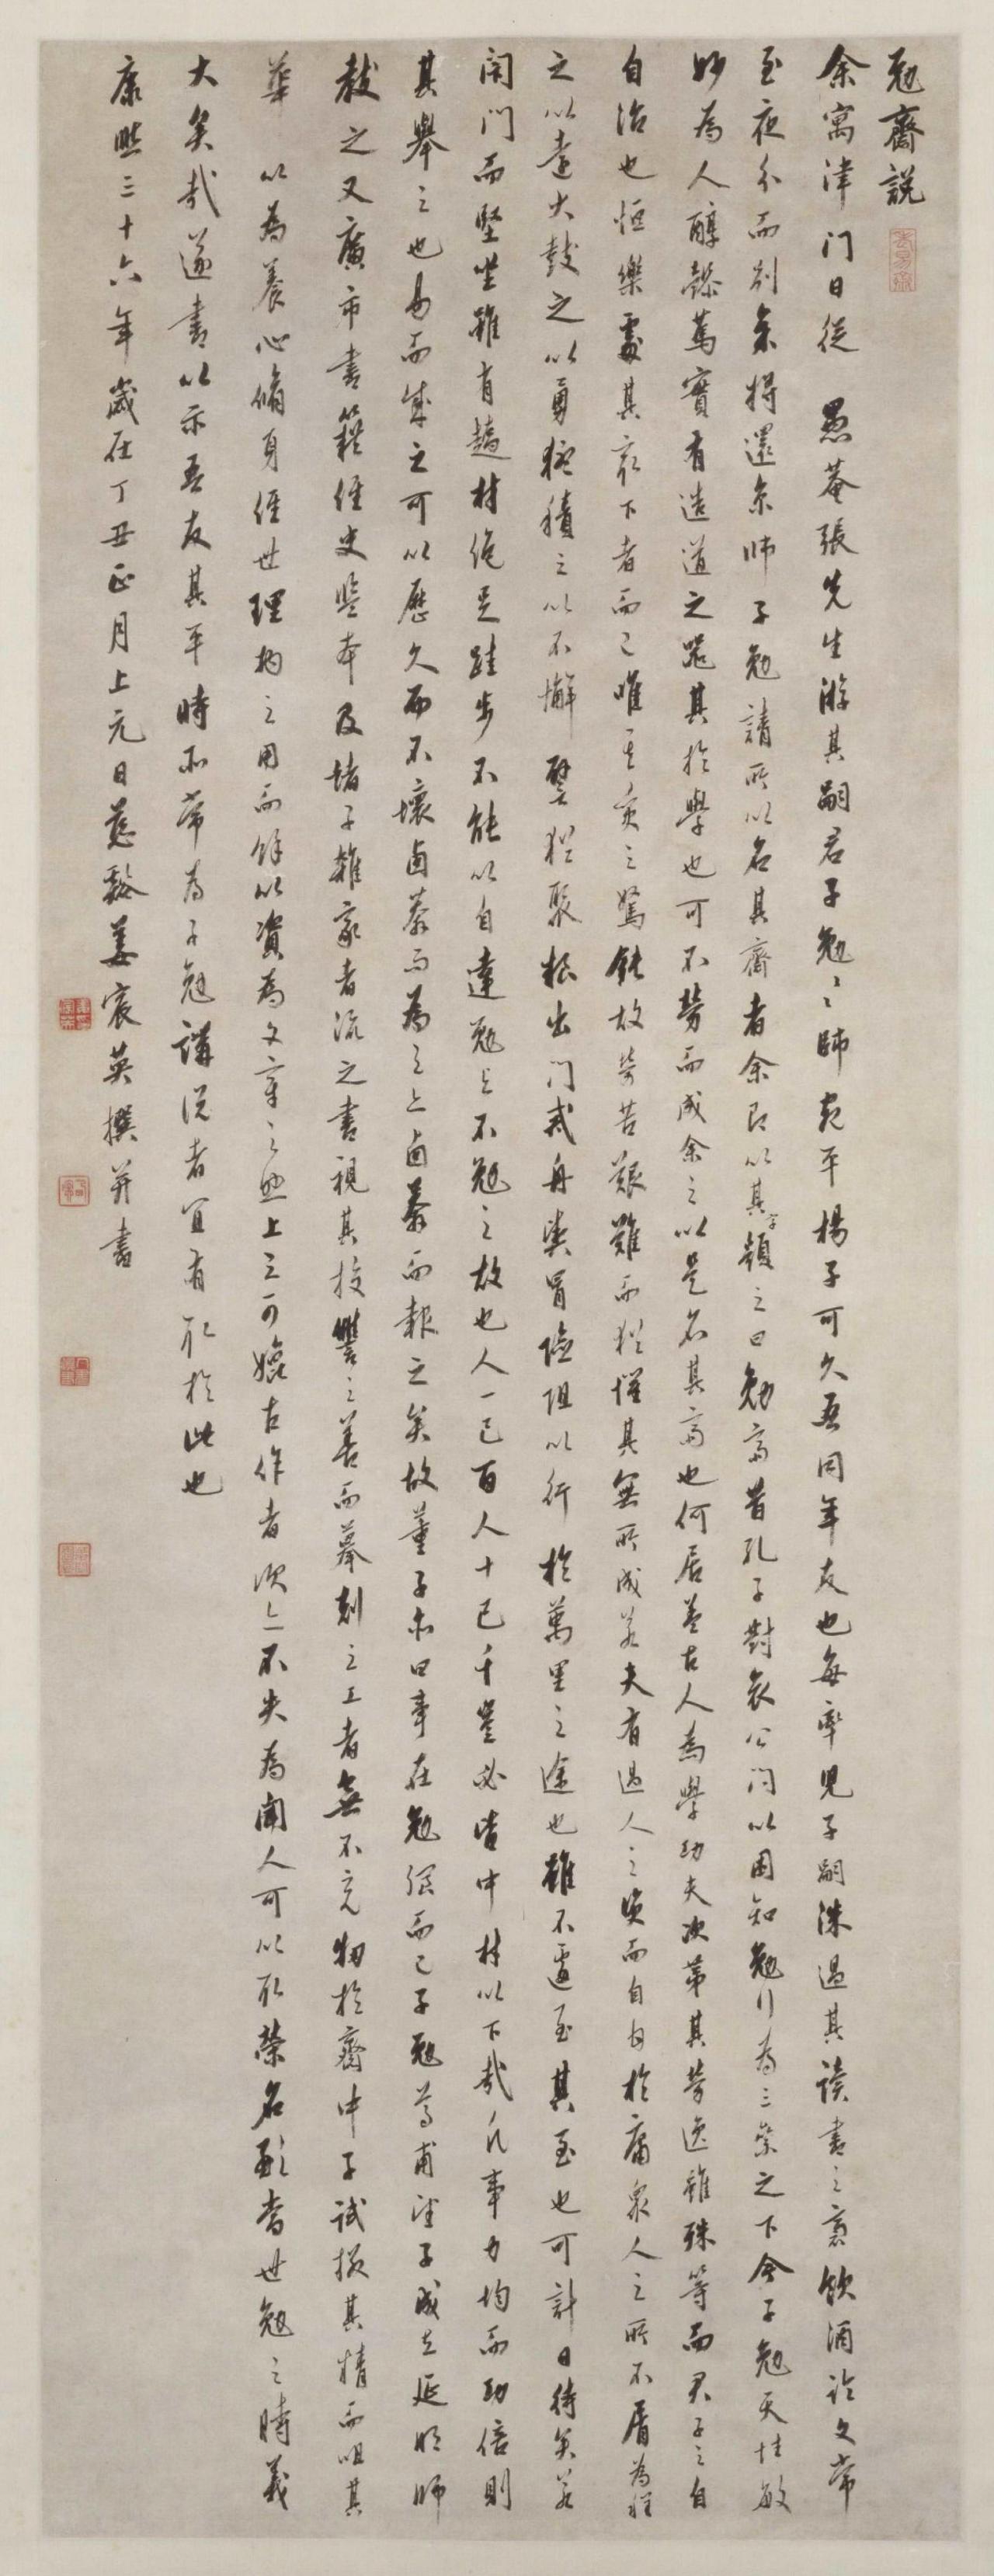 勉齋說
余寓津门日從愚菴張先生游其嗣君子勉〻師宛平楊子可久吾同年友也每率兒子嗣洙過其讀書之室飲酒論文常
至夜分而別余將還京師子勉請所以名其齋者余即以其字額之曰勉齋昔孔子對哀公问以困知勉行為三等之下今子勉天性敏
妙為人醇懿篤實有造道之器其於學也可不勞而成余之以是名其齋也何居蓋古人為學功夫次第其勞逸雖殊等而君子之自
自治也恒樂處其最下者而已唯其質之駑鈍故勞苦艱難而猶懼其無所成若夫有過人之資而自同於庸衆人之所不屑為程
之以遠大鼓之以勇猛積之以不懈譬猶聚粮出门戒舟輿冒險阻以行於萬里之途也雖不遽至其至也可計日待矣若
閉门而堅坐雖有趫材絕足跬步不能以自達勉與不勉之故也人一己百人十己千豈必皆中材以下哉凡事力均而功倍則
其舉之也易而成之可以歷久而不壞鹵莽而為之亦鹵莽而報之矣故董子亦曰事在勉强而已子勉尊甫望子成立延明師
教之又廣市書籍經史監本及諸子雜家者流之書視其挍讐之善而摹刻之工者無不充牣於齋中子試擷其精而咀其
華以為養心脩身經世理物之用而餘以資為文章之業上之可媲古作者次亦不失為聞人可以取榮名於當世勉之時義
大矣哉遂書以示吾友其平時所常為子勉講說者宜有取於此也
康熙三十六年歲在丁丑正月上元日慈谿姜宸英撰并書